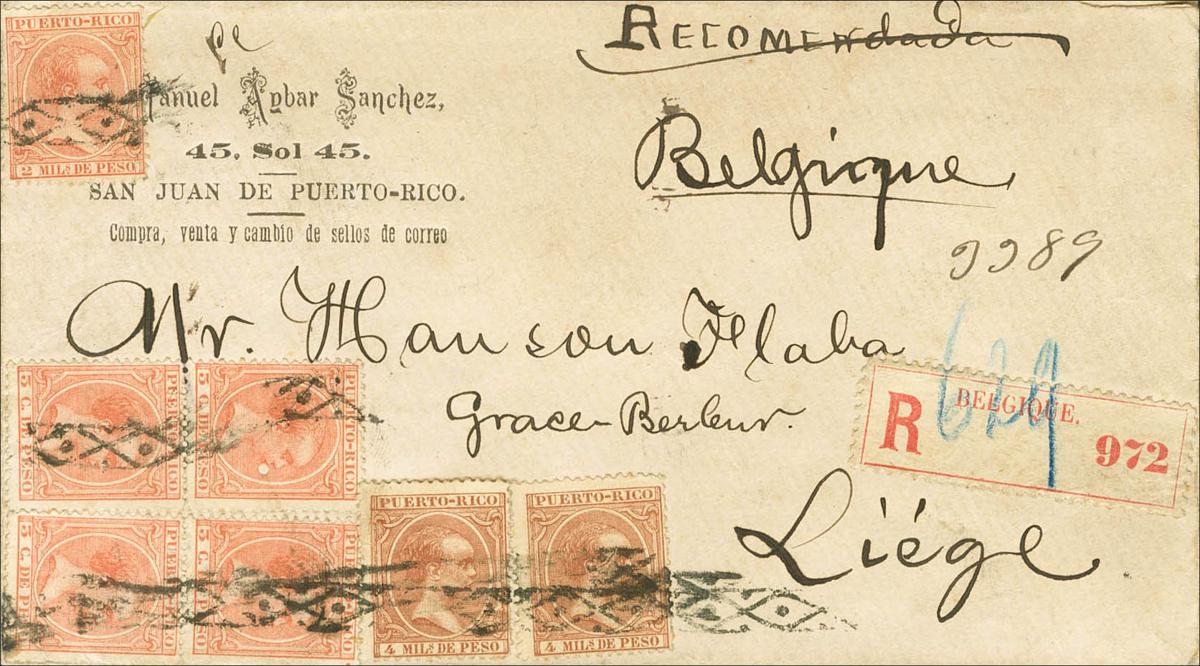 PUERTO-RICO
2 MILS DE PESO
Recomendada
Manuel Aybar Sanchez,
45. Sol 45.
SAN JUAN DE PUERTO-RICO.
Compra, venta y cambio de sellos de correo
Belgique
9989
Mr. Hanson Flaba
Grace-Berleur.
Liége
R
BELGIQUE.
972
629
PUERTO-RICO
5 C. DE PESO
PUERTO-RICO
5 C. DE PESO
PUERTO-RICO
5 C. DE PESO
PUERTO-RICO
5 C. DE PESO
PUERTO-RICO
4 MILS DE PESO
PUERTO-RICO
4 MILS DE PESO